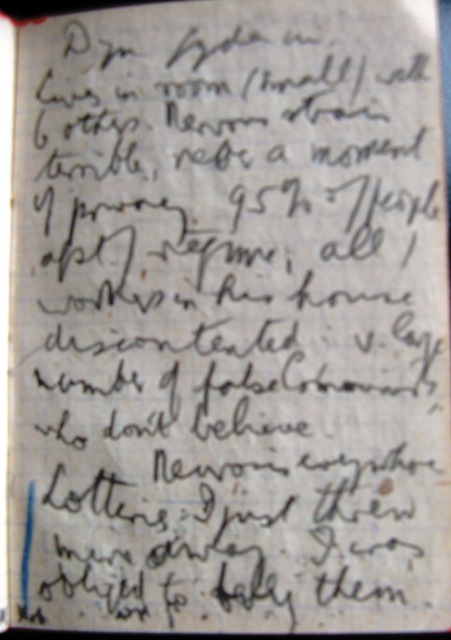 Lives in room (small) with
6 others. Nervous strain
terrible, never a moment
of privacy. 95% of people
agst regime, all
workers in his house
discontented. v. large
number of false Communists,
who don't believe.
Nervous everywhere
Lotteries: I just threw
mine away. I was
obliged to buy them.